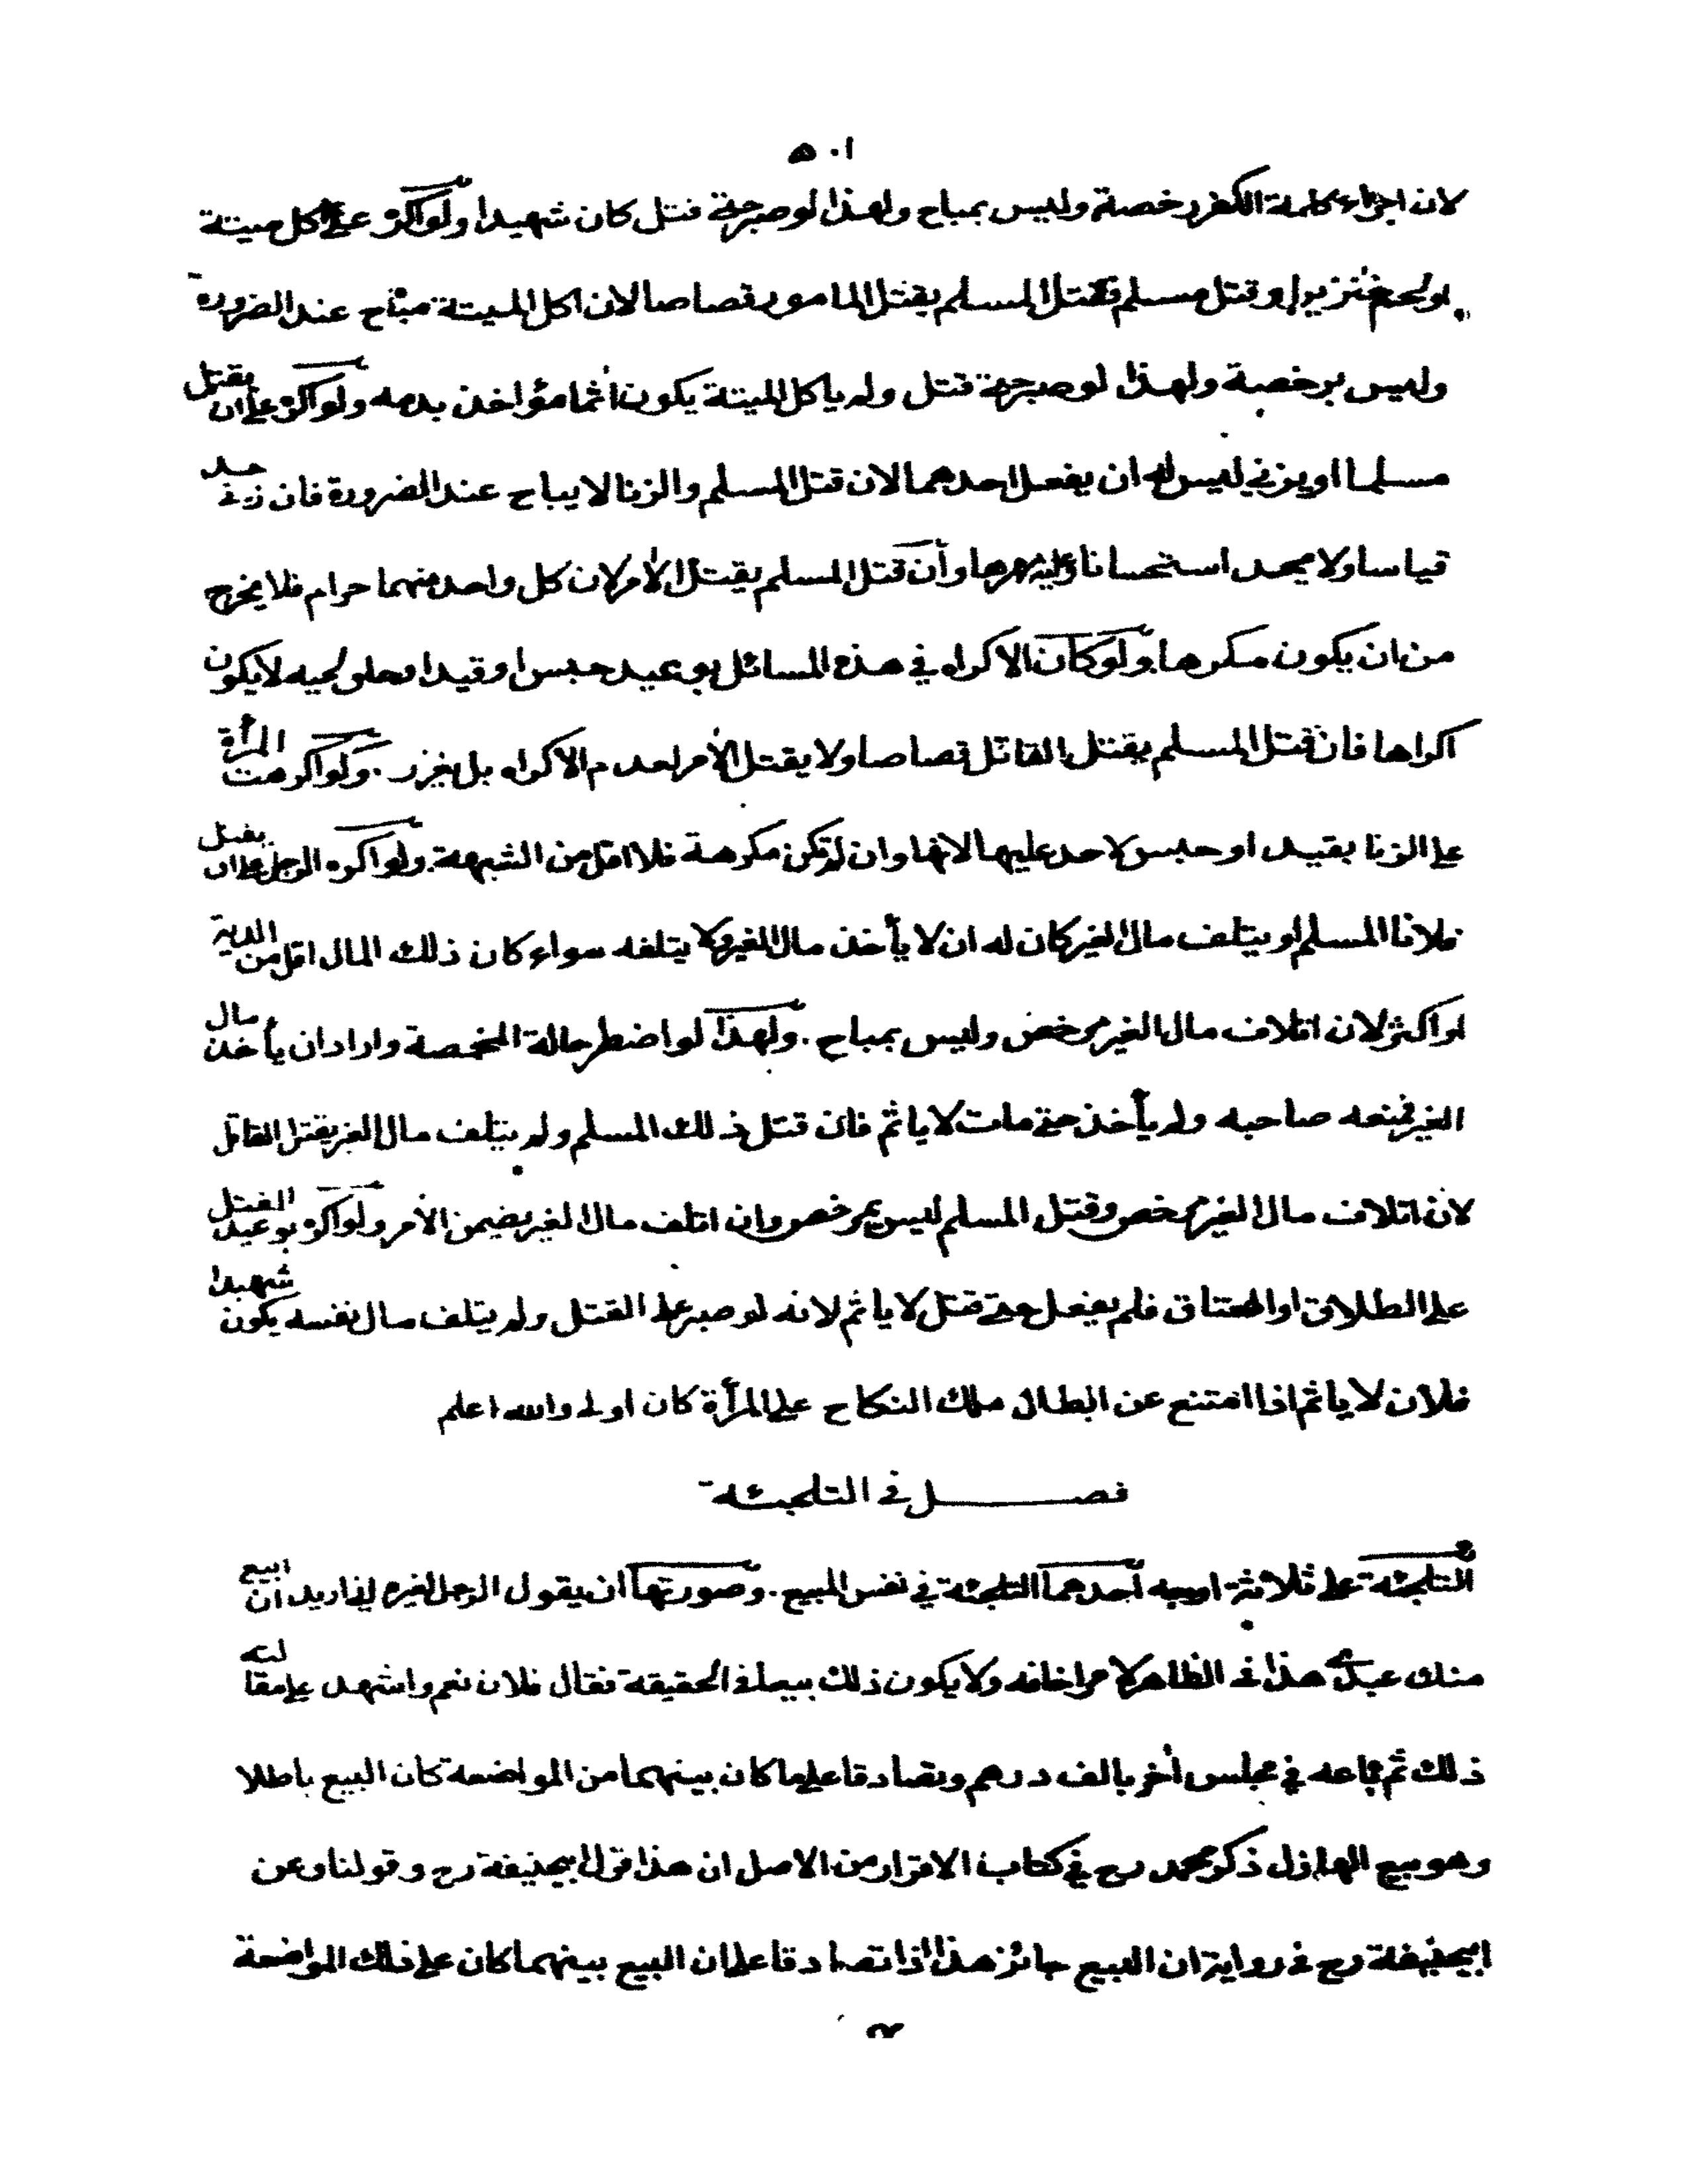 ٥٠١
لان اجراء كلمة الكفر رخصة وليس بمباح ولهذا لو صبر حتى قتل كان شهيدا ولو اكره على اكل ميتة
او لحم خنزير او قتل مسلم فقتل المسلم يقتل المامور قصاصا لان اكل الميتة مباح عند الضرورة
وليس برخصة ولهذا لو صبر حتى قتل ولم ياكل الميتة يكون اثما مؤاخذ بدمه ولو اكره على ان يقتل
مسلما او يزني ليس له ان يفعل احدهما لان قتل المسلم والزنا لا يباح عند الضرورة فان زنى حد
قياسا ولا يحد استحسانا وعليه مهرها وان قتل المسلم يقتل الأمر لان كل واحد منهما حرام فلا يخرج
من ان يكون مكرها ولو كان الاكراه في هذه المسائل بوعيد حبس او قيد او حلق لحيه لا يكون
اكراها فان قتل المسلم يقتل القاتل قصاصا ولا يقتل الأمر لعدم الاكراه بل يعزر . ولو اكرهت المرأة
على الزنا بقيد او حبس لا حد عليها لانها وان لم تكن مكرهة فلا اقل من الشبهة . ولو اكره الرجل على ان يقتل
فلانا المسلم او يتلف مال الغير كان له ان لا يأخذ مال الغير ولا يتلفه سواء كان ذلك المال اقل من الدية
او اكثر لان اتلاف مال الغير مرخص وليس بمباح . ولهذا لو اضطر حالة المخمصة واراد ان يأخذ مال
الغير فمنعه صاحبه ولم يأخذ حتى مات لا ياثم فان قتل ذلك المسلم ولم يتلف مال الغير يقتل القاتل
لان اتلاف مال الغير مرخص وقتل المسلم ليس بمرخص وان اتلف مال الغير يضمن الأمر ولو اكره بوعيد القتل
على الطلاق او العتاق فلم يفعل حتى قتل لا ياثم لانه لو صبر على القتل ولم يتلف مال نفسه يكون شهيدا
فلان لا ياثم اذا امتنع عن ابطال ملك النكاح على المرأة كان اولى والله اعلم
فصل في التلجئة
التلجئة على ثلاثة اوجه احدهما التلجئة في نفس المبيع . وصورتها ان يقول الرجل لغيره اني اريد ان ابيع
منك عبدى هذا فى الظاهر لامر اخافه ولا يكون ذلك بيعا فى الحقيقة فقال فلان نعم واشهد على مقالته
ذلك ثم باعه في مجلس أخر بالف درهم وتصادقا على ما كان بينهما من المواضعة كان البيع باطلا
وهو بيع الهازل ذكر محمد رح في كتاب الاقرار من الاصل ان هذا قول ابيحنيفة رح وقولنا وعن
ابيحنيفة رح فى رواية ان البيع جائز هذا اذا تصادقا على ان البيع بينهما كان على ذلك المواضعة